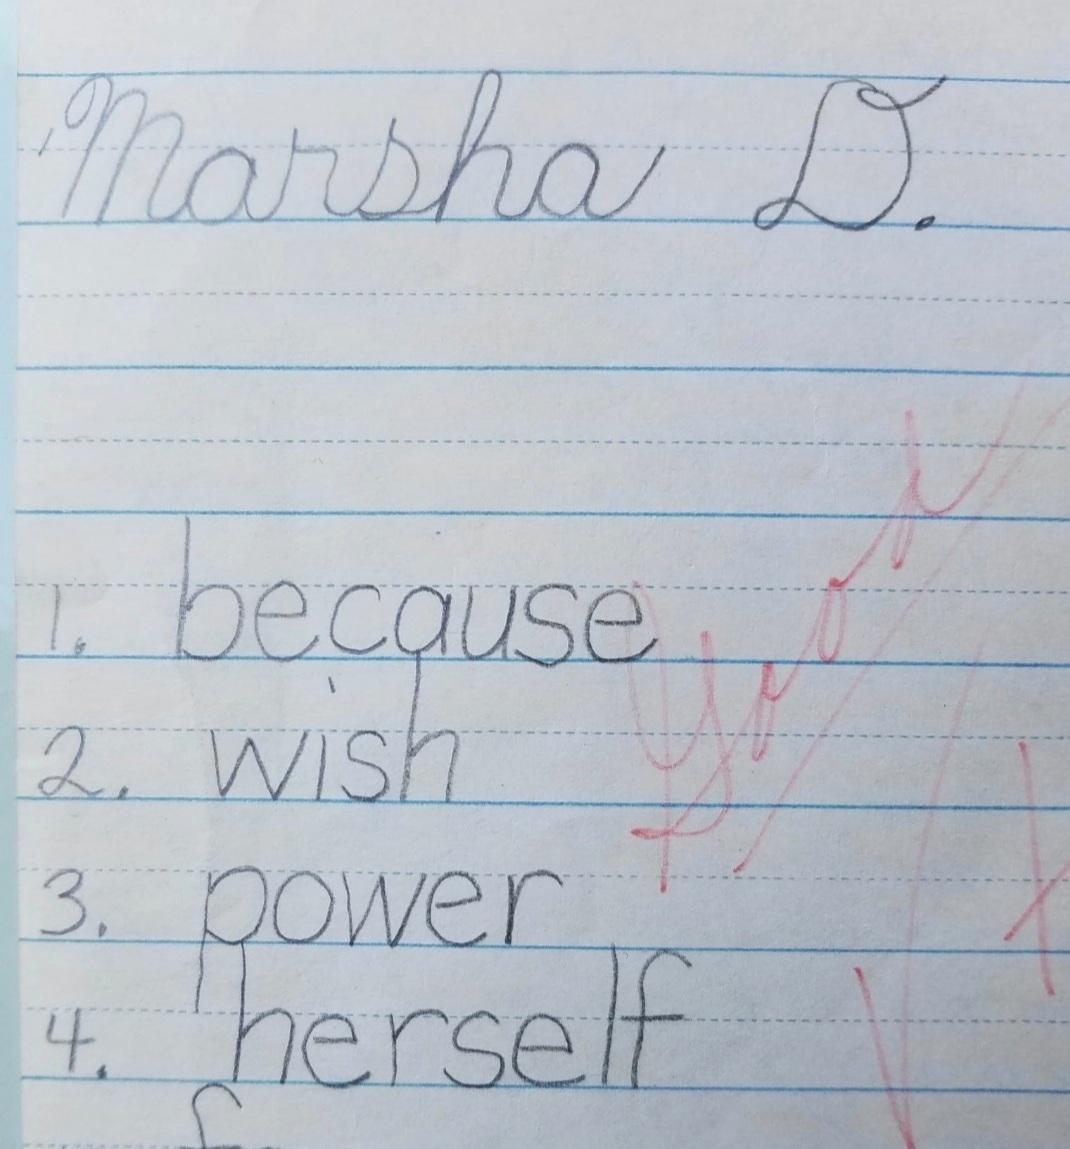 Marsha D.
1. because
2. wish
3. power
4. herself